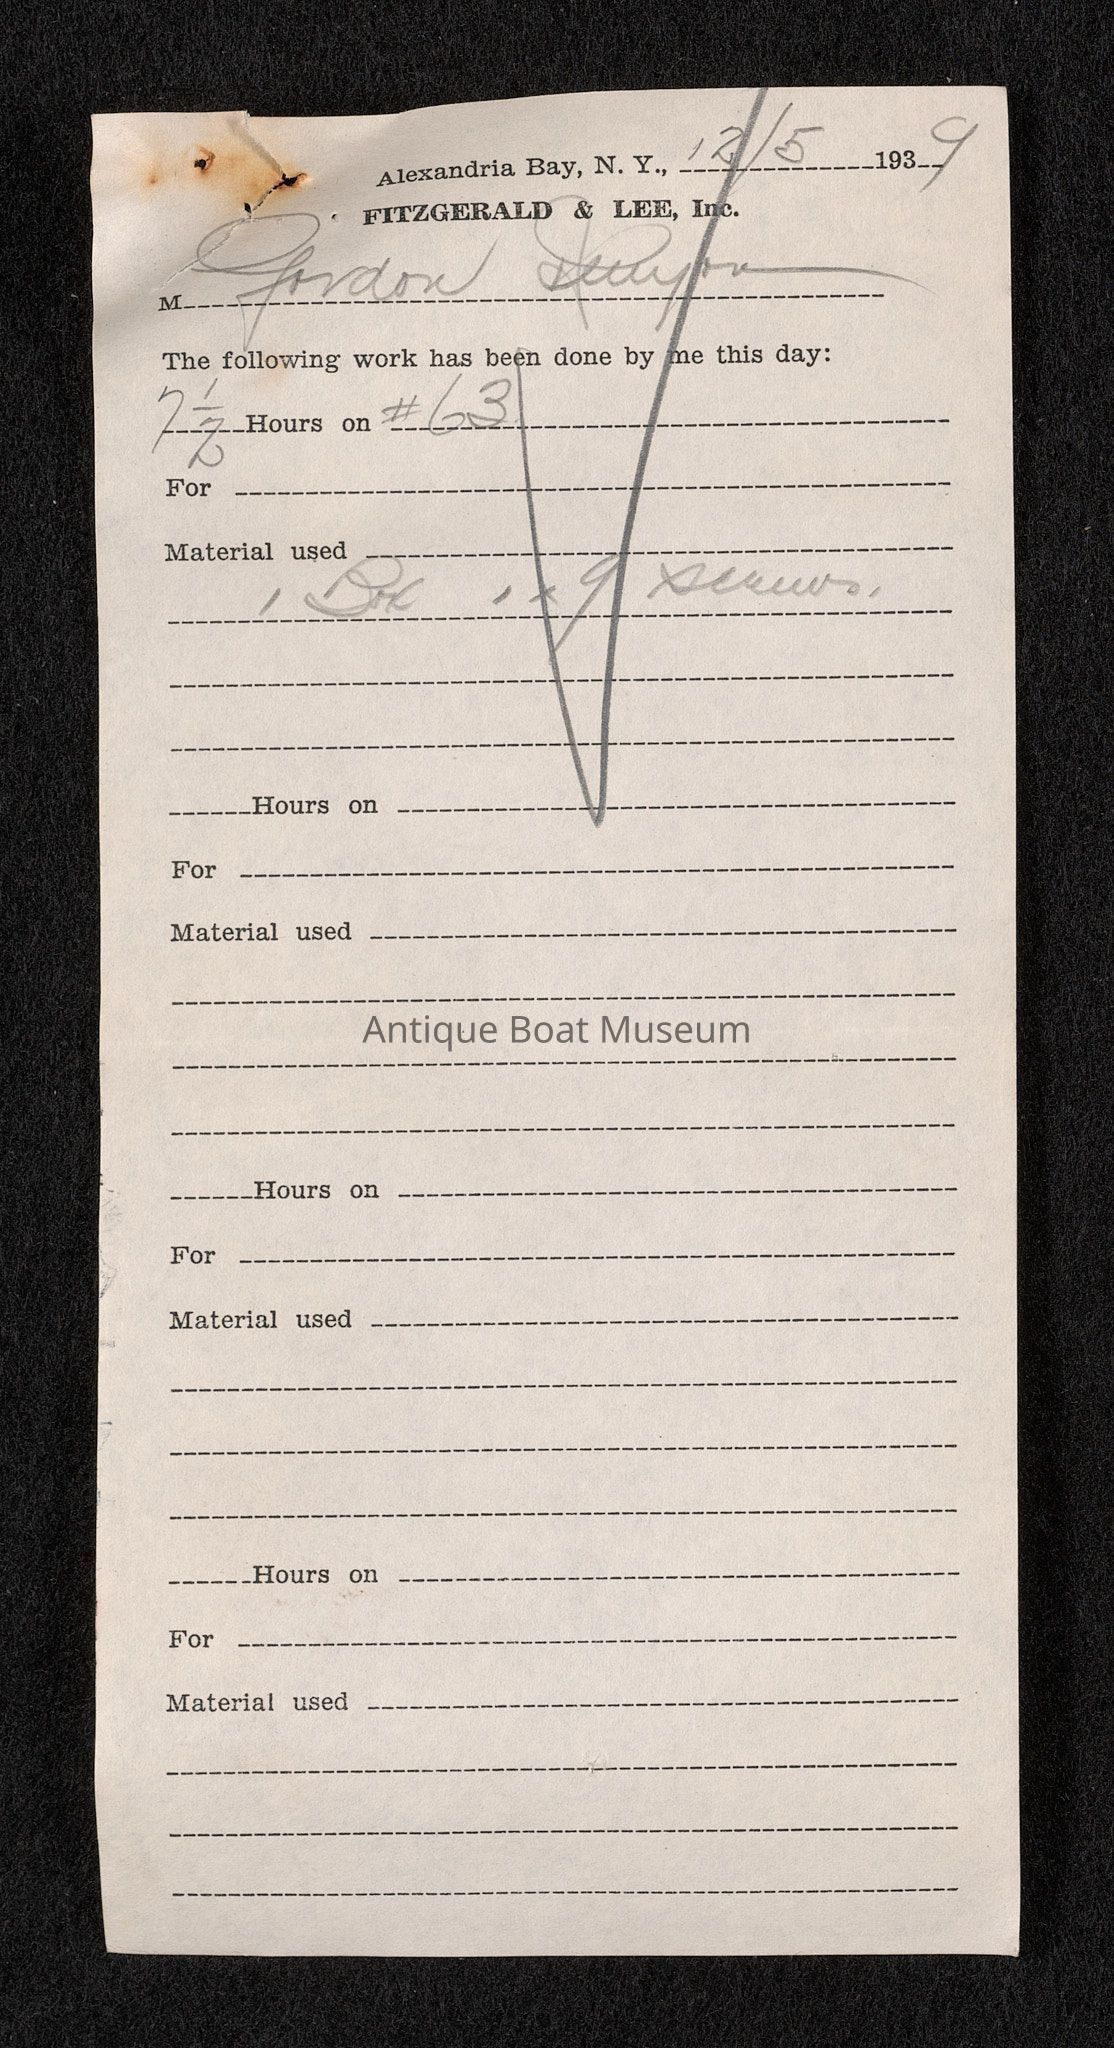 Alexandria Bay, N. Y., 12/5 1939
FITZGERALD & LEE, Inc.
M Gordon Runyon
The following work has been done by me this day:
7 1/2 Hours on #63
For
Material used
1 Box 1 x 9 screws.
Hours on
For
Material used
Antique Boat Museum
Hours on
For
Material used
Hours on
For
Material used